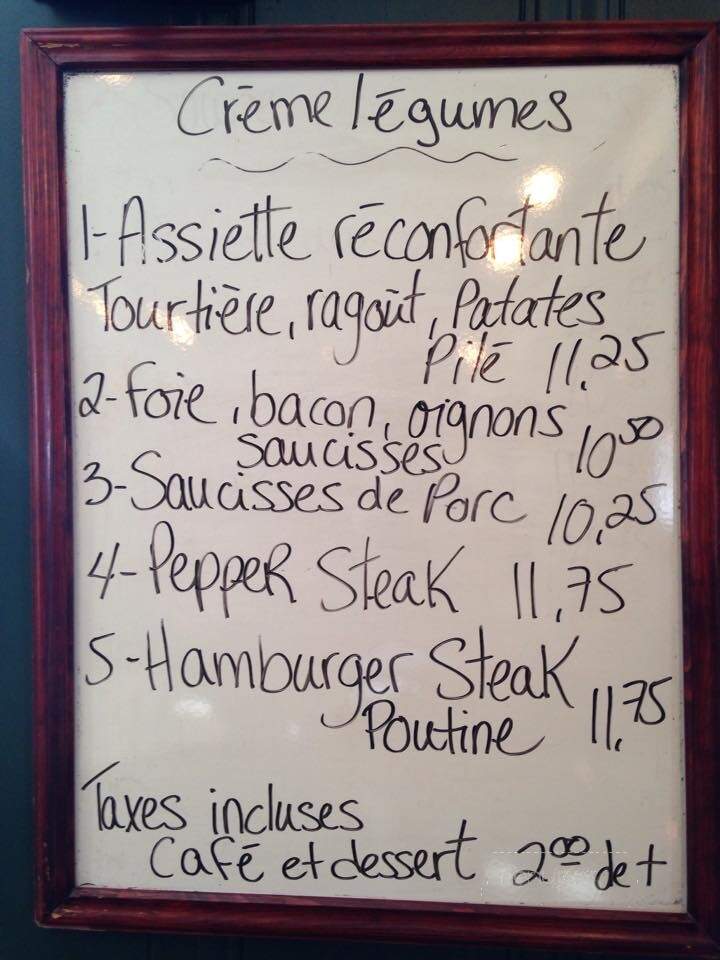 Crème légumes
1- Assiette réconfortante
Tourtière, ragoût, Patates
Pilé 11,25
2- foie, bacon, oignons
saucisses 10 50
3- Saucisses de Porc 10,25
4- Pepper Steak 11,75
5- Hamburger Steak
Poutine 11,75
Taxes incluses
Café et dessert 2 00 de +